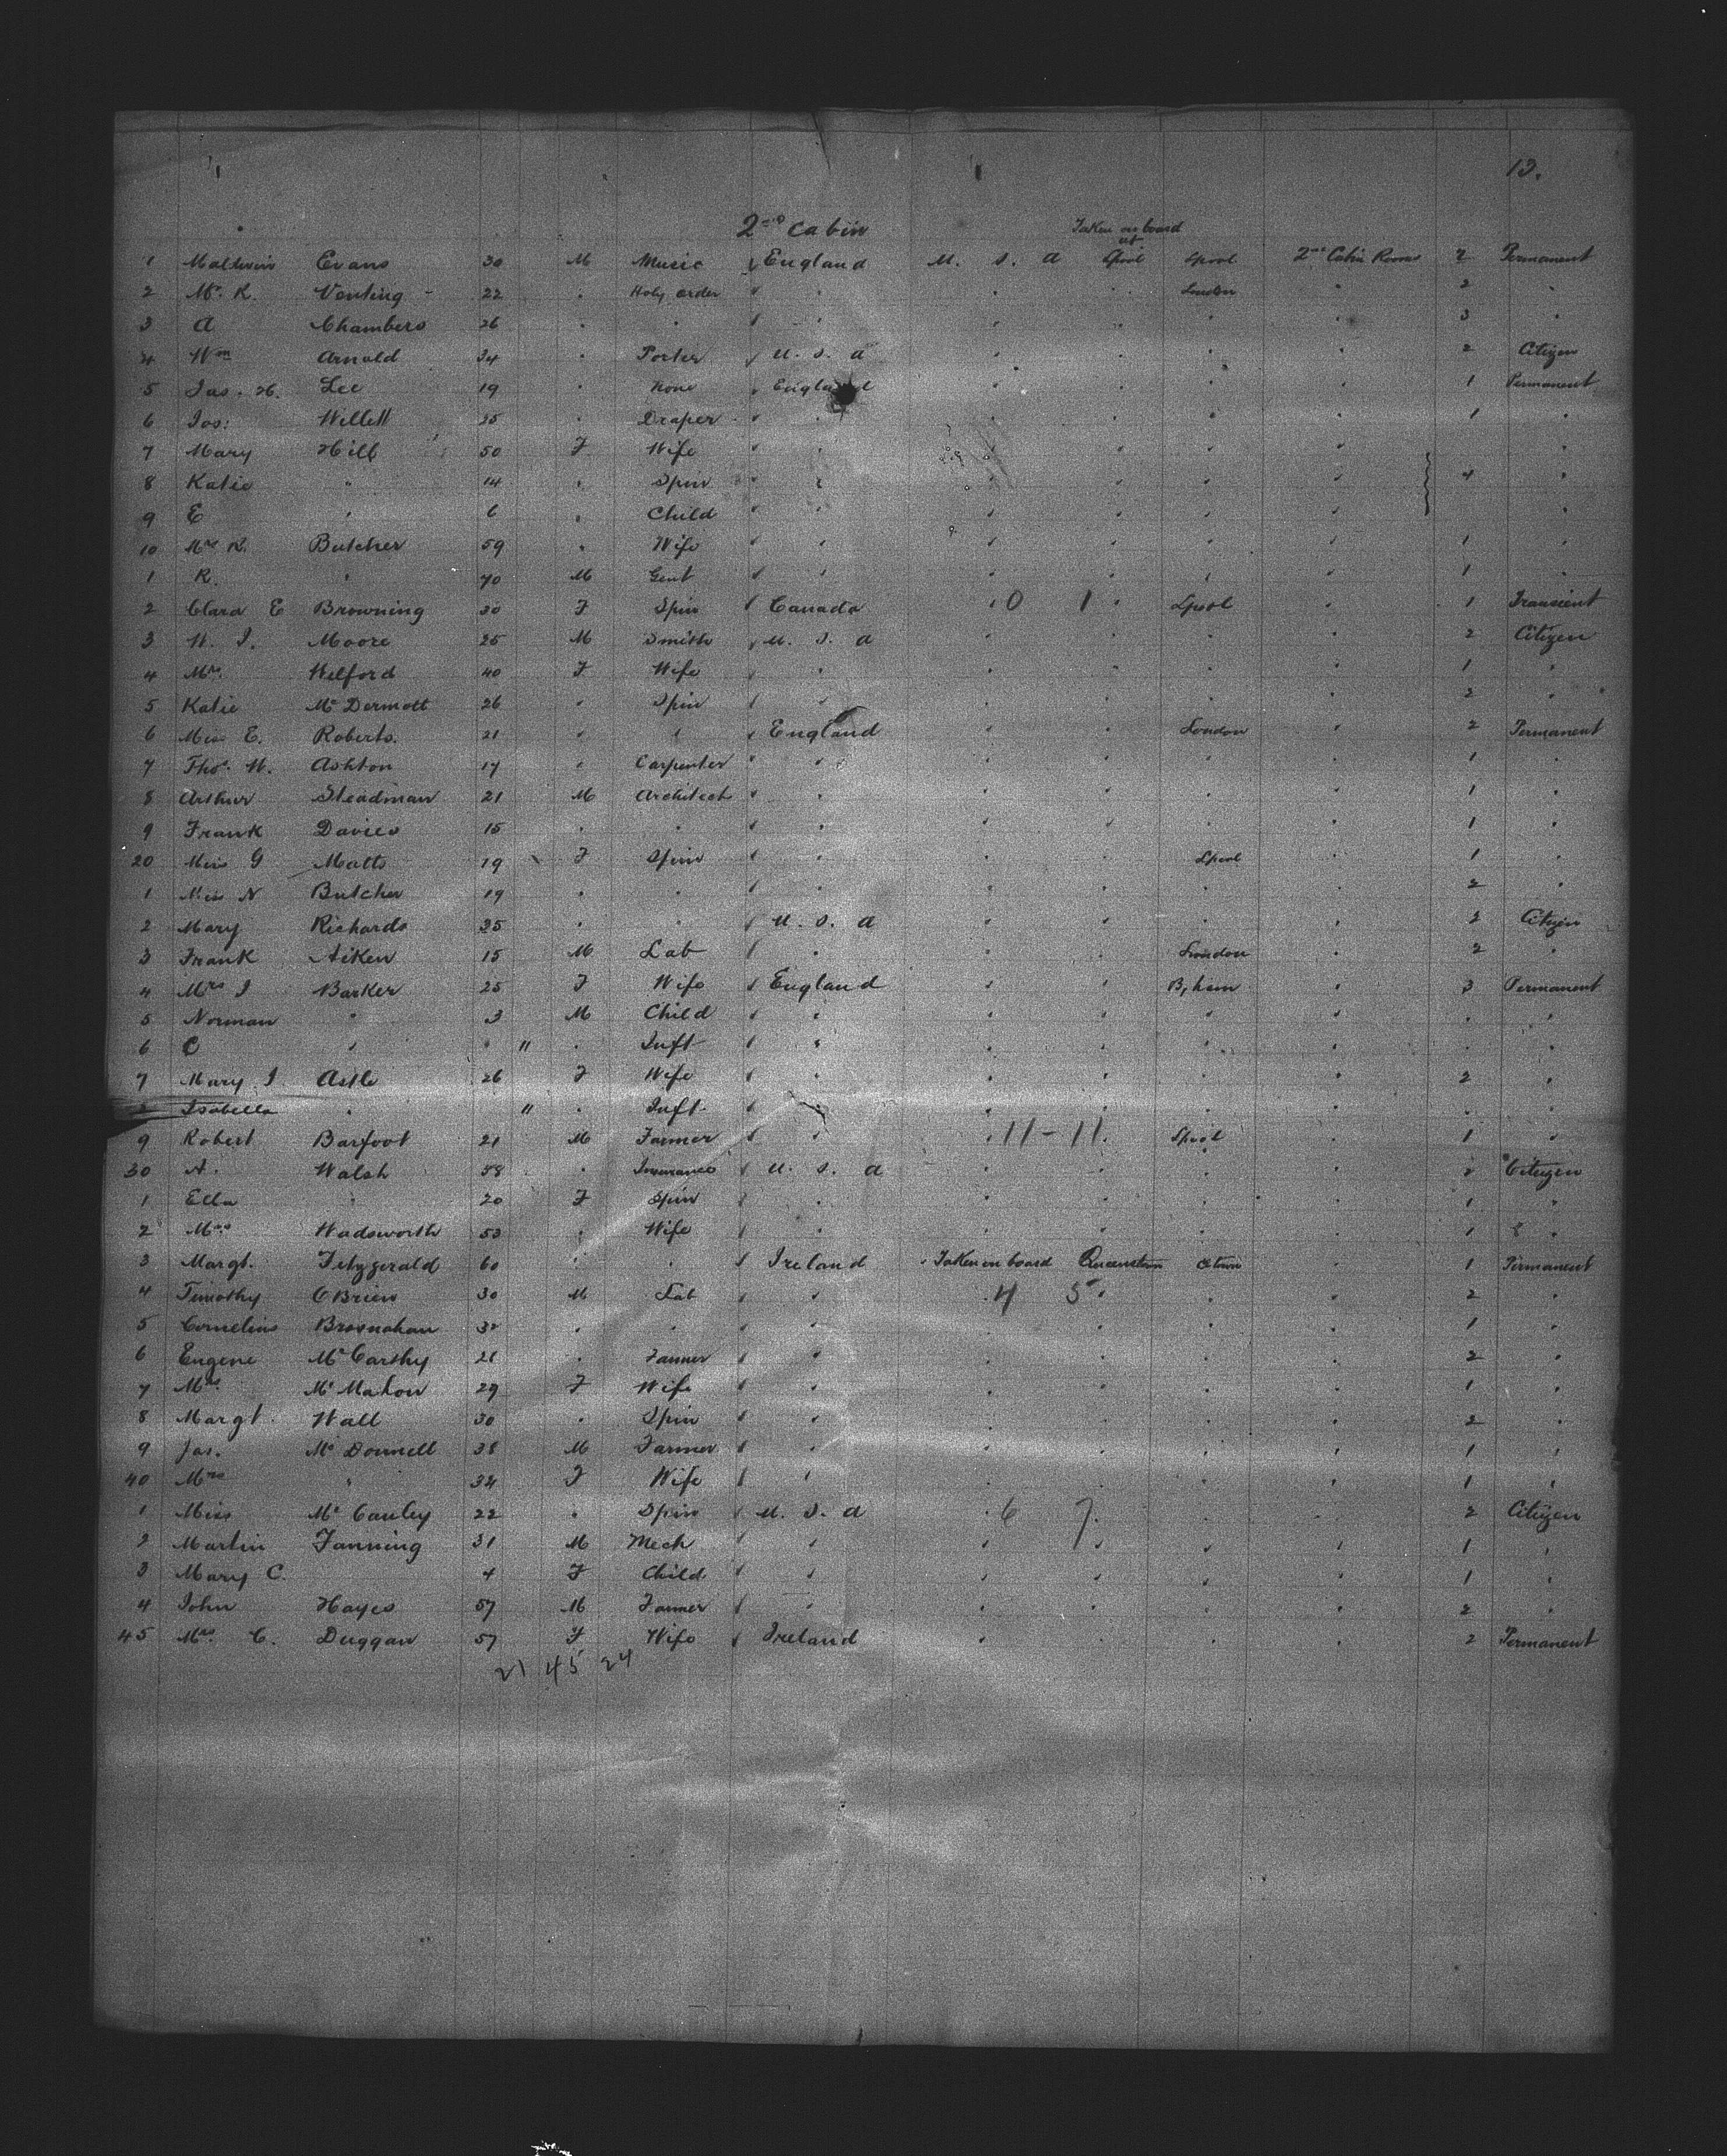 13.
2nd Cabin Taken on board at
1 Evans 30 M Music England U. S. A Lpool Lpool 2nd Cabin Rooms 2 Permanent
2 Mr. R. Venting 22 " Holy order " " " " London " 2 "
3 A Chambers 26 " " " " " " " 3 "
4 Wm Arnold 34 " Porter U. S. A " " " " 2 Citizen
5 Jas. H. Lee 19 " None England " " " " 1 Permanent
6 Jos: Willett 25 " Draper " " " " " 1 "
7 Mary Hill 50 F Wife " " " " " "
8 Katie " 14 " Spin " " " " " 4 "
9 E " 6 " Child " " " " " "
10 Mrs R. Butcher 59 " Wife " " " " " 1 "
1 R. " 70 M Gent " " " " " 1 "
2 Clara E Browning 30 F Spin Canada " 0 1 " Lpool " 1 Transient
3 W. J. Moore 25 M Smith U. S. A " " " " 2 Citizen
4 Mrs. Wilford 40 F Wife " " " " " 1 "
5 Katie McDermott 26 " Spin " " " " " 2 "
6 Miss E. Roberts. 21 " " England " " London " 2 Permanent
7 Thos. W. Ashton 17 " Carpenter " " " " " 1 "
8 Arthur Steadman 21 M Architect " " " " " 1 "
9 Frank Davies 15 " " " " " " " 1 "
20 Miss G Matts 19 F Spin " " " " Lpool " 1 "
1 Miss N Butcher 19 " " " " " " " 2 "
2 Mary Richards 35 " " U. S. A " " " " 2 Citizen
3 Frank Aiken 15 M Lab " " " " London " 2 "
4 Mrs J Barker 25 F Wife England " " B,ham " 3 Permanent
5 Norman " 3 M Child " " " " " " "
6 C " " " Inft " " " " " " "
7 Mary J. Astle 26 F Wife " " " " " 2 "
8 Isabella " " " Inft. " " " " " " "
9 Robert Barfoot 21 M Farmer " " 11-11. Lpool " 1 "
30 A. Walsh 58 " Insurance U. S. A " " " " 2 Citizen
1 Ella " 20 F Spin " " " " " 1 "
2 Mrs. Wadsworth 53 " Wife " " " " " 1 "
3 Margt. Fitzgerald 60 " " Ireland Taken on board Queenstown " 1 Permanent
4 Timothy O'Brien 30 M Lab " " 4 5 " " " 2 "
5 Cornelius Brosnahan 32 " " " " " " " 1 "
6 Eugene McCarthy 28 " Farmer " " " " " 2 "
7 Mrs. McMahon 29 F Wife " " " " " 1 "
8 Margt. Wall 30 " Spin " " " " " 2 "
9 Jas. McDonnell 38 M Farmer " " " " " 1 "
40 Mrs " 34 F Wife " " " " " 1 "
1 Miss McCauley 22 " Spin U. S. A " 6 7. " " 2 Citizen
2 Martin Fanning 31 M Mech " " " " " 1 "
3 Mary C. 4 F Child " " " " " 1 "
4 John Hayes 57 M Farmer " " " " " 2 "
45 Mrs. C. Duggan 57 F Wife Ireland " " " " 2 Permanent
21 45 24